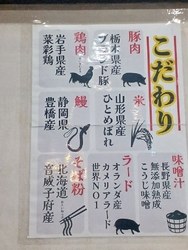 こだわり
豚肉
栃木県産
ブランド豚
鶏肉
岩手県産
菜彩鶏
米
山形県産
ひとめぼれ
鰻
静岡県
豊橋産
味噌汁
長野県産
無添加熟成
こうじ味噌
ラード
オランダ産
カメリアラード
世界NO1
そば粉
北海道
音威子府産